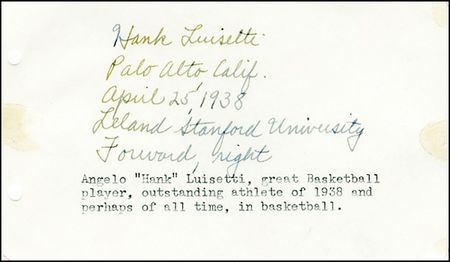 Hank Luisetti
Palo Alto, Calif.
April 25, 1938
Leland Stanford University
Forward, right
Angelo "Hank" Luisetti, great Basketball
player, outstanding athlete of 1938 and
perhaps of all time, in basketball.